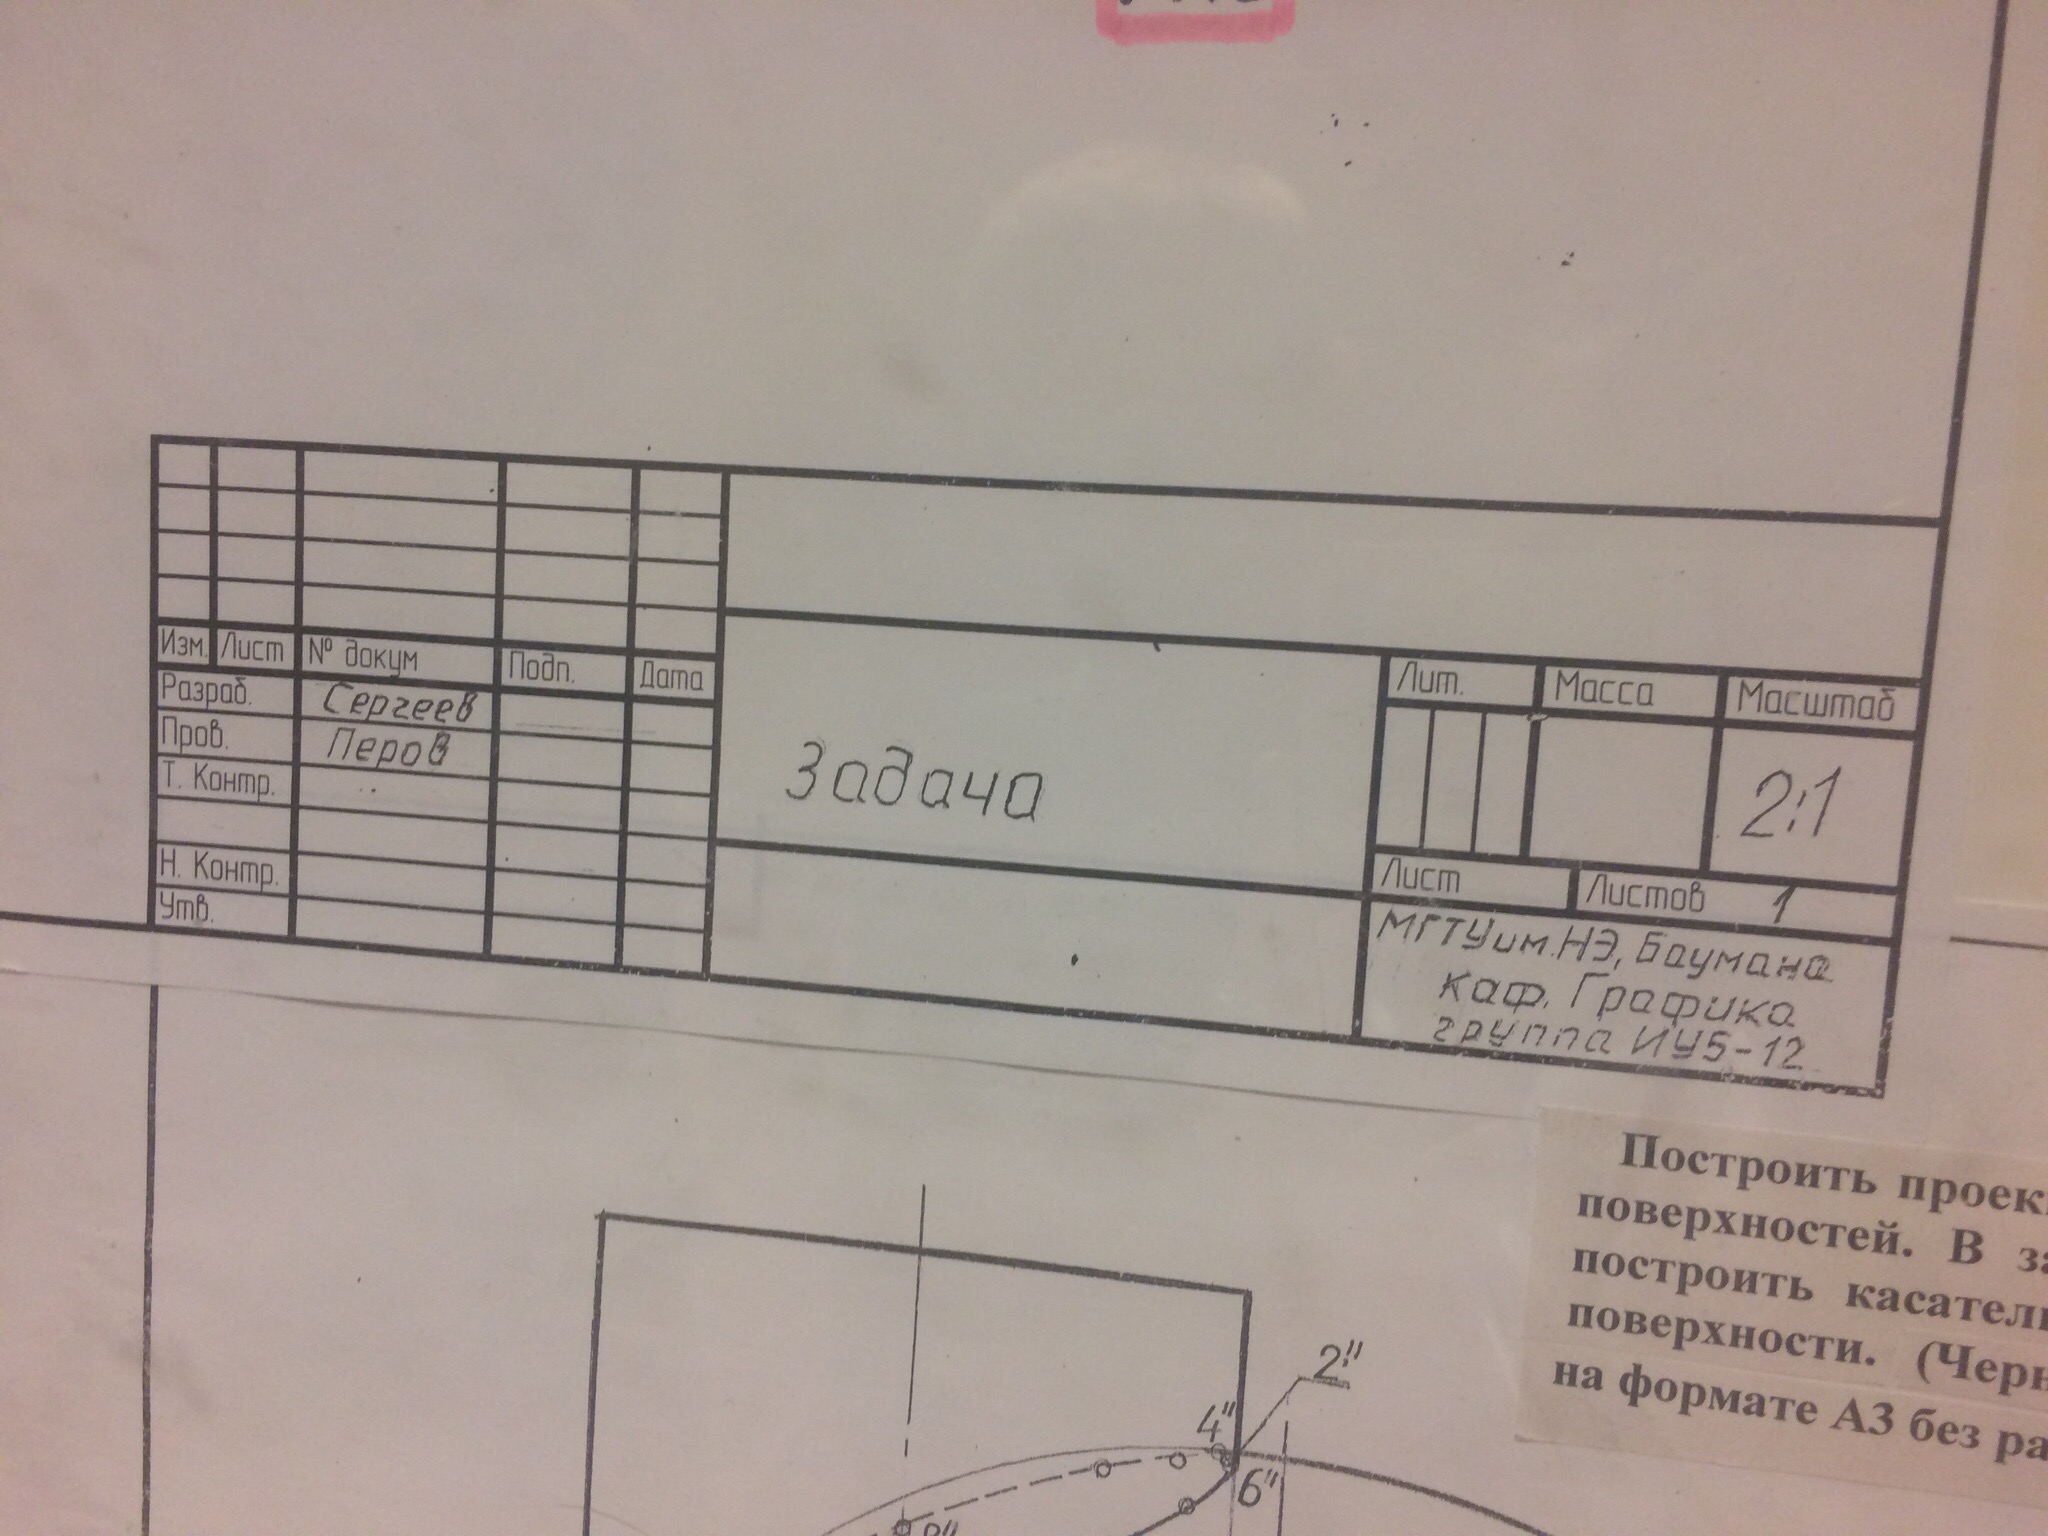 Изм. Лист № докум Подп. Дата
Разраб. Сергеев
Пров. Перов
Т. Контр.
Н. Контр.
Утв.
Задача
Лит. Масса Масштаб
2:1
Лист Листов 1
МГТУ им. НЭ, Баумана
каф. Графика
группа ИУ5-12
Построить проек
поверхностей. В за
построить касатель
поверхности. (Черн
на формате А3 без ра
2"
4"
6"